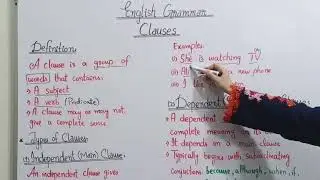 English Grammar
Clauses
Definition:
A clause is a group of
words that contains:
→ A subject
→ A verb (Predicate)
→ A clause may or may not
give a complete sense.
Types of Clauses
(i) Independent (Main) Clause
An independent clause gives
Examples:
(i) She is watching TV
(ii) new phone
(iii) I
(ii) Dependent
A dependent
complete meaning
→ It depends on a main clause
→ Typically begins with subordinating
conjunctions: because, although, when, if.